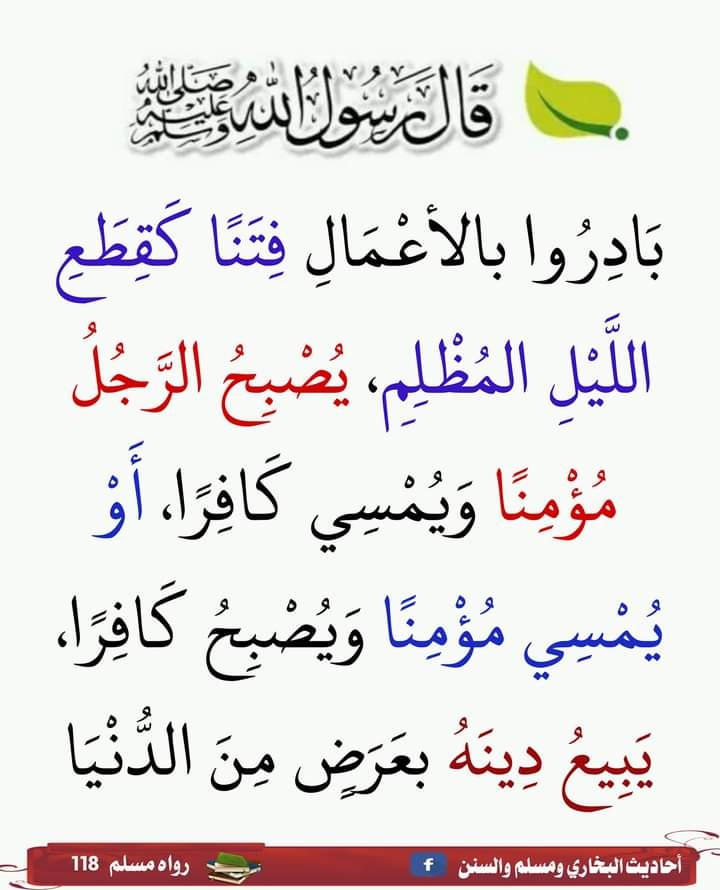 قَالَ رَسُولُ اللهِ صَلَّى اللهُ عَلَيْهِ وَسَلَّمَ
بَادِرُوا بالأعْمَالِ فِتَنًا كَقِطَعِ
اللَّيْلِ المُظْلِمِ، يُصْبِحُ الرَّجُلُ
مُؤْمِنًا وَيُمْسِي كَافِرًا، أَوْ
يُمْسِي مُؤْمِنًا وَيُصْبِحُ كَافِرًا،
يَبِيعُ دِينَهُ بعَرَضٍ مِنَ الدُّنْيَا
أحاديث البخاري ومسلم والسنن f رواه مسلم 118